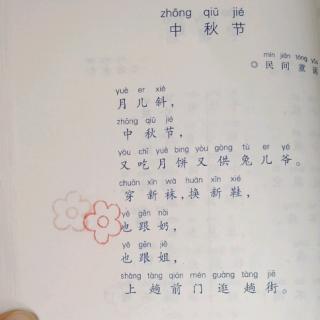 zhōng qiū jié
中秋节
mín jiān tóng yáo
◎民间童谣
yuè er xié
月儿斜，
zhōng qiū jié
中秋节，
yòu chī yuè bǐng yòu gòng tù er yé
又吃月饼又供兔儿爷。
chuān xīn wà huàn xīn xié
穿新袜，换新鞋，
yě gēn nǎi
也跟奶，
yě gēn jiě
也跟姐，
shàng tàng qián mén guàng tàng jiē
上趟前门逛趟街。